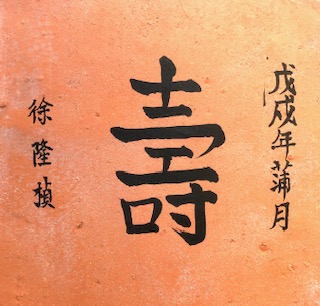 戊戌年蒲月
壽
徐隆楨